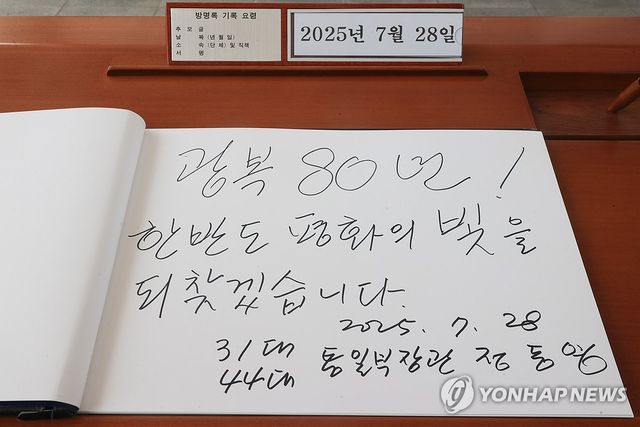 방명록 기록 요령
추 모 글
날 짜 (년 월 일)
소 속 (단 체) 및 직책
서 명
2025년 7월 28일
광복 80년!
한반도 평화의 빛을
되찾겠습니다.
2025. 7. 28
31대
44대 통일부장관 정동영
YONHAPNEWS